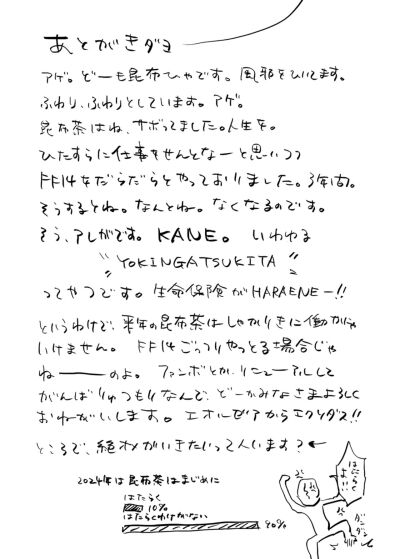 あとがきダヨ
アゲ。どーも昆布ひゃです。風邪をひいてます。
ふわり、ふわりとしています。アゲ。
昆布茶はね、サボってました。人生を。
ひたすらに仕事をせんとなーと思いつつ
FF14をだらだらとやっておりました。3年間。
そうするとね。なんとね。なくなるのです。
そう、アレがです。KANE。いわゆる
"YOKINGATSUKITA"
ってやつです。生命保険がHARAENEー!!
というわけで、来年の昆布茶はしゃかりきに働かにゃ
いけません。FF14ごっつりやっとる場合じゃ
ねーーーのよ。ファンボとか、リニューアルして
がんばりゅつもりなんで、どーかみなさまよろしく
おねがいします。エオルゼアからエクソダス!!
ところで、絶オメがいきたいって人います?←
はたらく
よ!!
ダンダン
2024年は昆布茶はまじめに
はたらく
10%
はたらくわけがない
90%